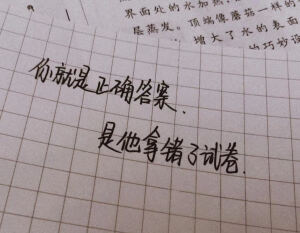 界面处的水加热
层蒸发。顶端像蘑菇一样的
增大了水的表面
你就是正确答案.
是他拿错了试卷.